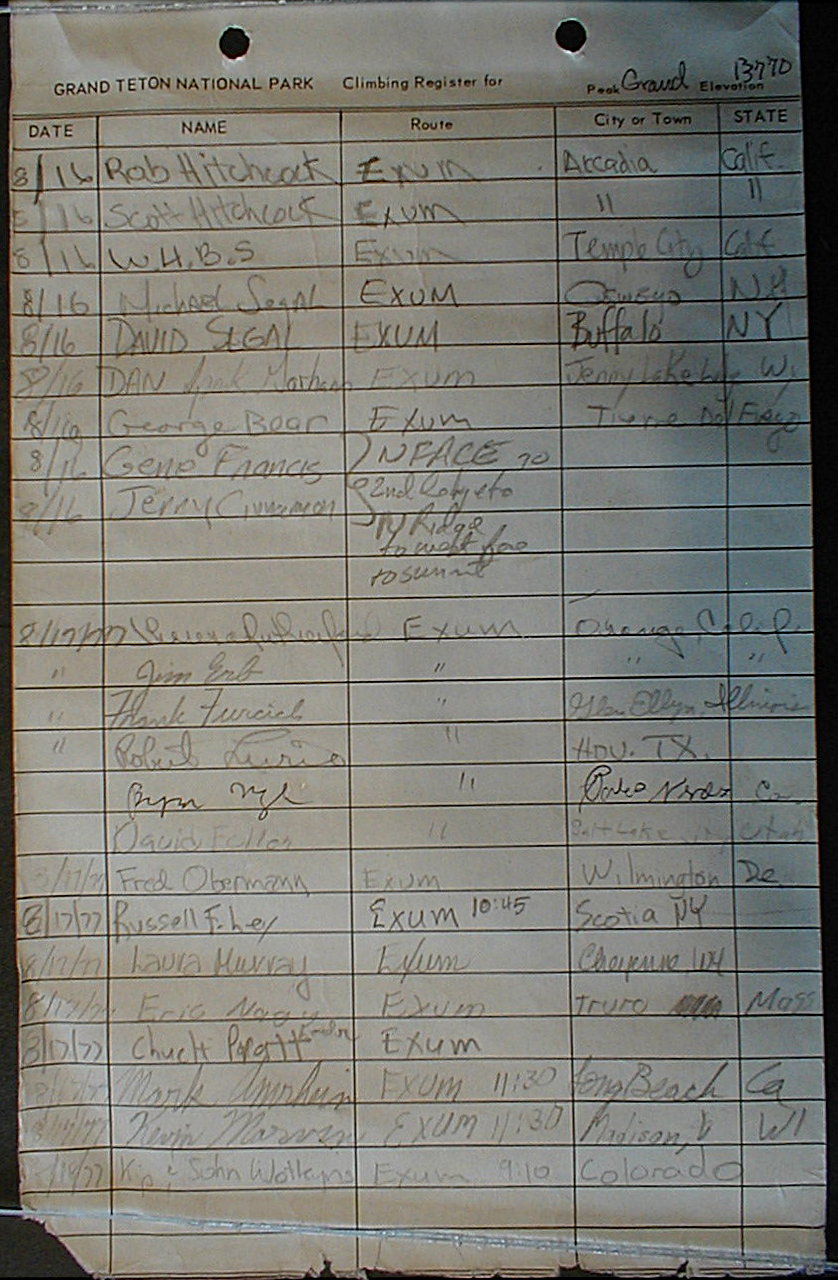 GRAND TETON NATIONAL PARK Climbing Register for Peak Grand Elevation 13770
DATE NAME Route City or Town STATE
8/16 Rob Hitchcock Exum Arcadia Calif.
8/16 Scott Hitchcock Exum " "
8/16 W.H.B.S Exum Temple City Calif
8/16 Michael Segal EXUM Oswego NY
8/16 DAVID SEGAL EXUM Buffalo NY
8/16 DAN Exum Jenny Lake Wy
8/16 George Bear Exum Tierra Del Fuego
8/16 Gene Francis N FACE TO
8/16 Jerry Cinnamon 2nd to
N Ridge
to west face
to summit
8/17/77 Exum Orange, Calif.
" Jim Erb " " "
" Frank " Glen Ellyn, Illinois
" Robert " HOU. TX.
" Ca.
David " Salt Lake City Utah
8/17/77 Fred Obermann Exum Wilmington De
8/17/77 Russell F. Ley EXUM 10:45 Scotia NY
8/17/77 Laura Murray Exum Cheyenne, WY
8/17/77 Eric Nagy Exum Truro Mass
8/17/77 Chuck Exum
Mark EXUM 11:30 Long Beach Ca
Kevin EXUM 11:30 Madison, WI
Kip & John Watkins Exum 9:10 Colorado